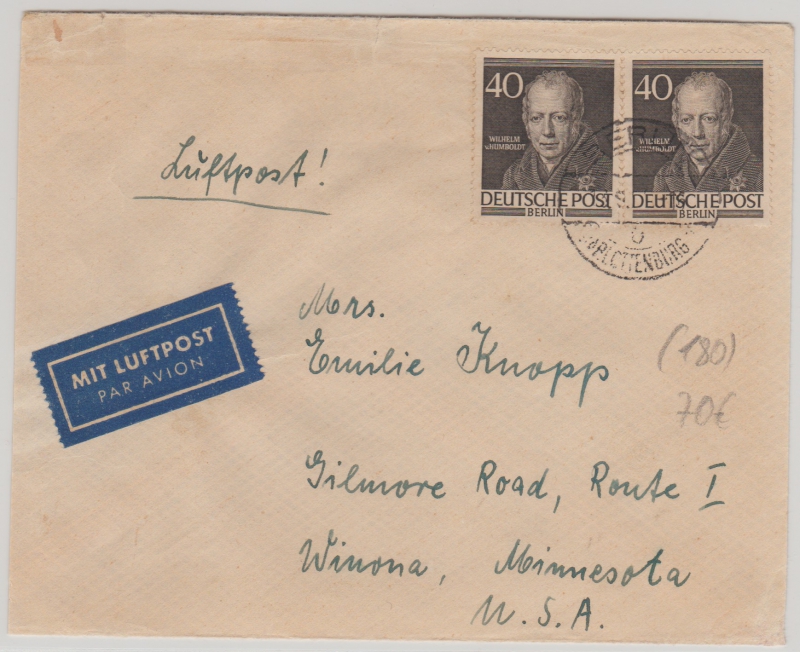 40 40
WILHELM
v.HUMBOLDT
WILHELM
v.HUMBOLDT
DEUTSCHE POST DEUTSCHE POST
BERLIN BERLIN
CHARLOTTENBURG
Luftpost!
MIT LUFTPOST
PAR AVION
Mrs.
Emilie Knopp
(180)
70€
Gilmore Road, Route I
Winona, Minnesota
U.S.A.